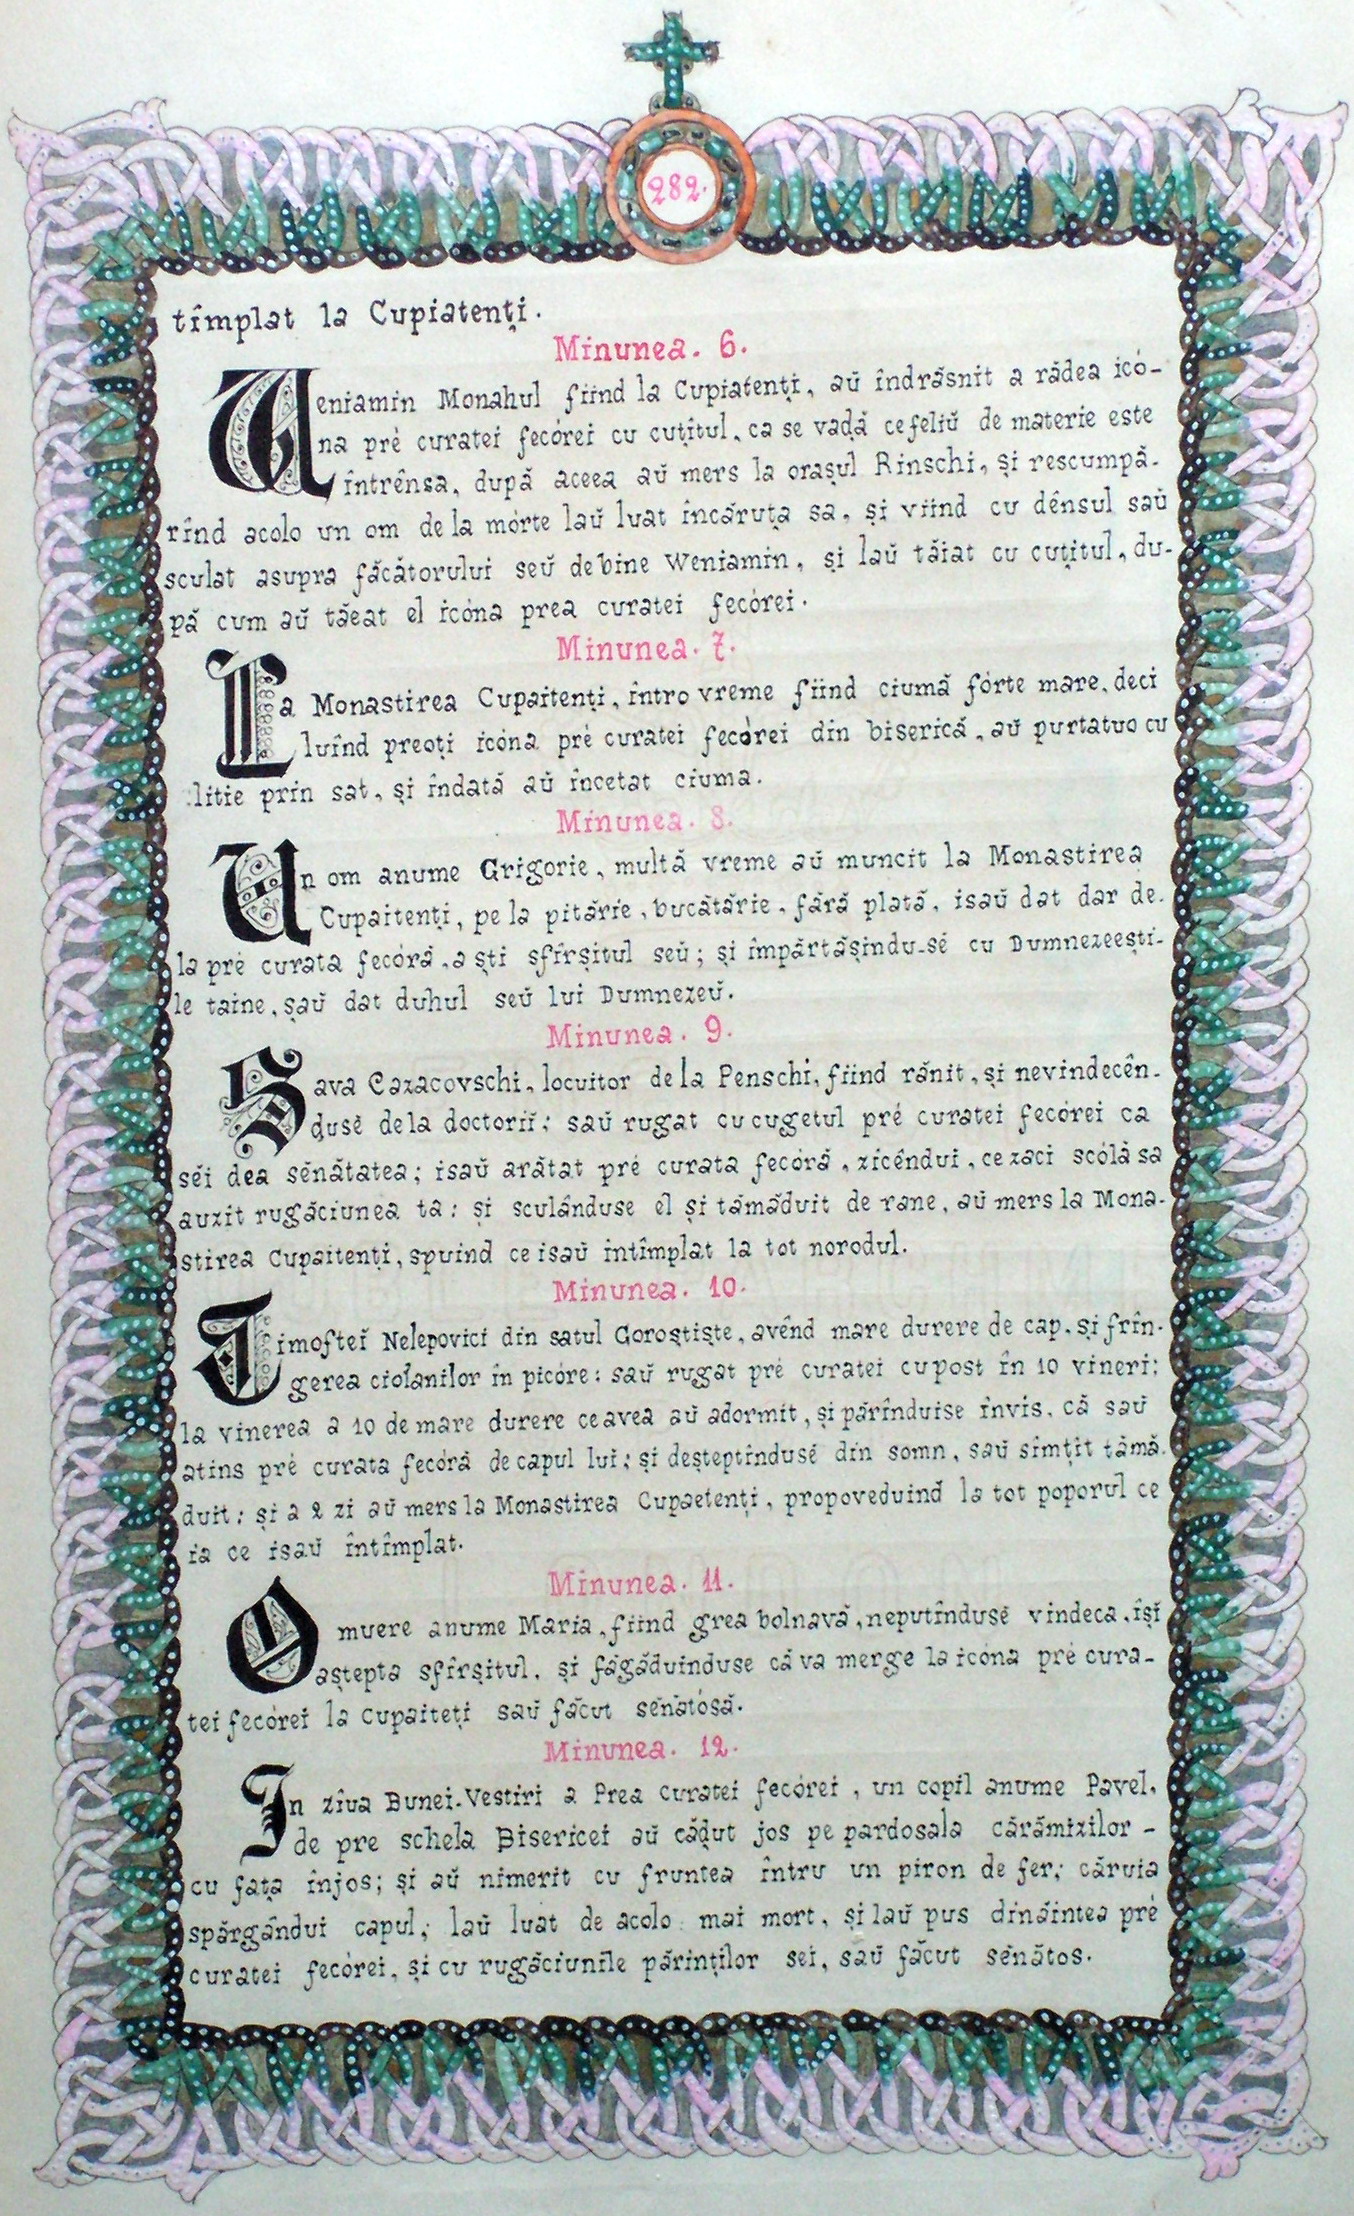 282.
tîmplat la Cupiatenți.
Minunea. 6.
Weniamin Monahul fiind la Cupiatenți, aŭ îndrăsnit a rădea icó-
na pré curatei fecórei cu cuțitul, ca se vadă cefeliŭ de materie este
întrênsa, după aceea aŭ mers la orașul Rinschi, și rescumpă-
rînd acolo un om dela mórte laŭ luat încăruța sa, și viind cu dénsul saŭ
sculat asupra făcătorului seŭ debine Weniamin, și laŭ tăiat cu cuțitul, du-
pă cum aŭ tăeat el icóna prea curatei fecórei.
Minunea. 7.
La Monastirea Cupaitenți, întro vreme fiind ciumă fórte mare, deci
luînd preoți icóna pré curatei fecórei din biserică, aŭ purtatuo cu
litie prin sat, și îndată aŭ încetat ciuma.
Minunea. 8.
Un om anume Grigorie, multă vreme aŭ muncit la Monastirea
Cupaitenți, pe la pitărie, bucătărie, fără plată, isaŭ dat dar de
la pré curata fecóră, a ști sfîrșitul seŭ; și împărtășindu-sé cu Dumnezeești-
le taine, șaŭ dat duhul seŭ lui Dumnezeŭ.
Minunea. 9.
Sava Cazacovschi, locuitor dela Penschi, fiind rănit, și nevindecên-
dusĕ dela doctoriĭ; saŭ rugat cu cugetul pré curatei fecórei ca
séi dea sénătatea; isaŭ arătat pré curata fecóră, zicéndui, ce zaci scólă sa
auzit rugăciunea ta; și sculânduse el și tămăduit de rane, aŭ mers la Mona-
stirea Cupaitenți, spuind ce isaŭ intîmplat la tot norodul.
Minunea. 10.
Timofteĭ Nelepovici din satul Goroștiște, avénd mare durere de cap, și frîn-
gerea ciolanilor în picóre; saŭ rugat pré curatei cu post în 10 vineri;
la vinerea a 10 de mare durere ce avea aŭ adormit, și părînduise invis, că saŭ
atins pré curata fecóră de capul lui; și deșteptîndusé din somn, saŭ simțit tămă-
duit; și a 2 zi aŭ mers la Monastirea Cupaetenți, propoveduind la tot poporul ce
ia ce isaŭ întîmplat.
Minunea. 11.
O muere anume Maria, fiind grea bolnavă, neputîndusé vindeca, își
aștepta sfîrșitul, și făgăduinduse că va merge la icóna pré cura-
tei fecórei la Cupaiteți saŭ făcut sénătósă.
Minunea. 12.
In ziua Bunei-Vestiri a Prea curatei fecórei, un copil anume Pavel,
de pre schela Bisericei aŭ cădut jos pe pardosala cărămizilor -
cu fața înjos; și aŭ nimerit cu fruntea întru un piron de fer; căruia
spărgândui capul; laŭ luat de acolo mai mort, și laŭ pus dinăintea pré
curatei fecórei, și cu rugăciunile părinților sei, saŭ făcut sénătos.